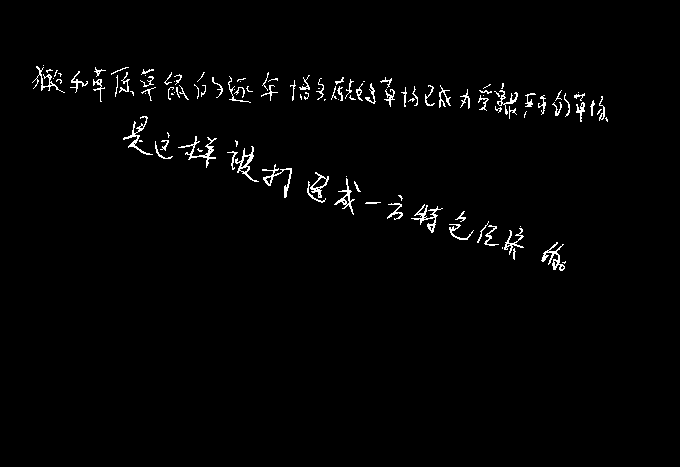 獭和草原草鼠的逐年增多原超载草场已成为受鼠害的草场
是这样被打造成一方特色经济的。